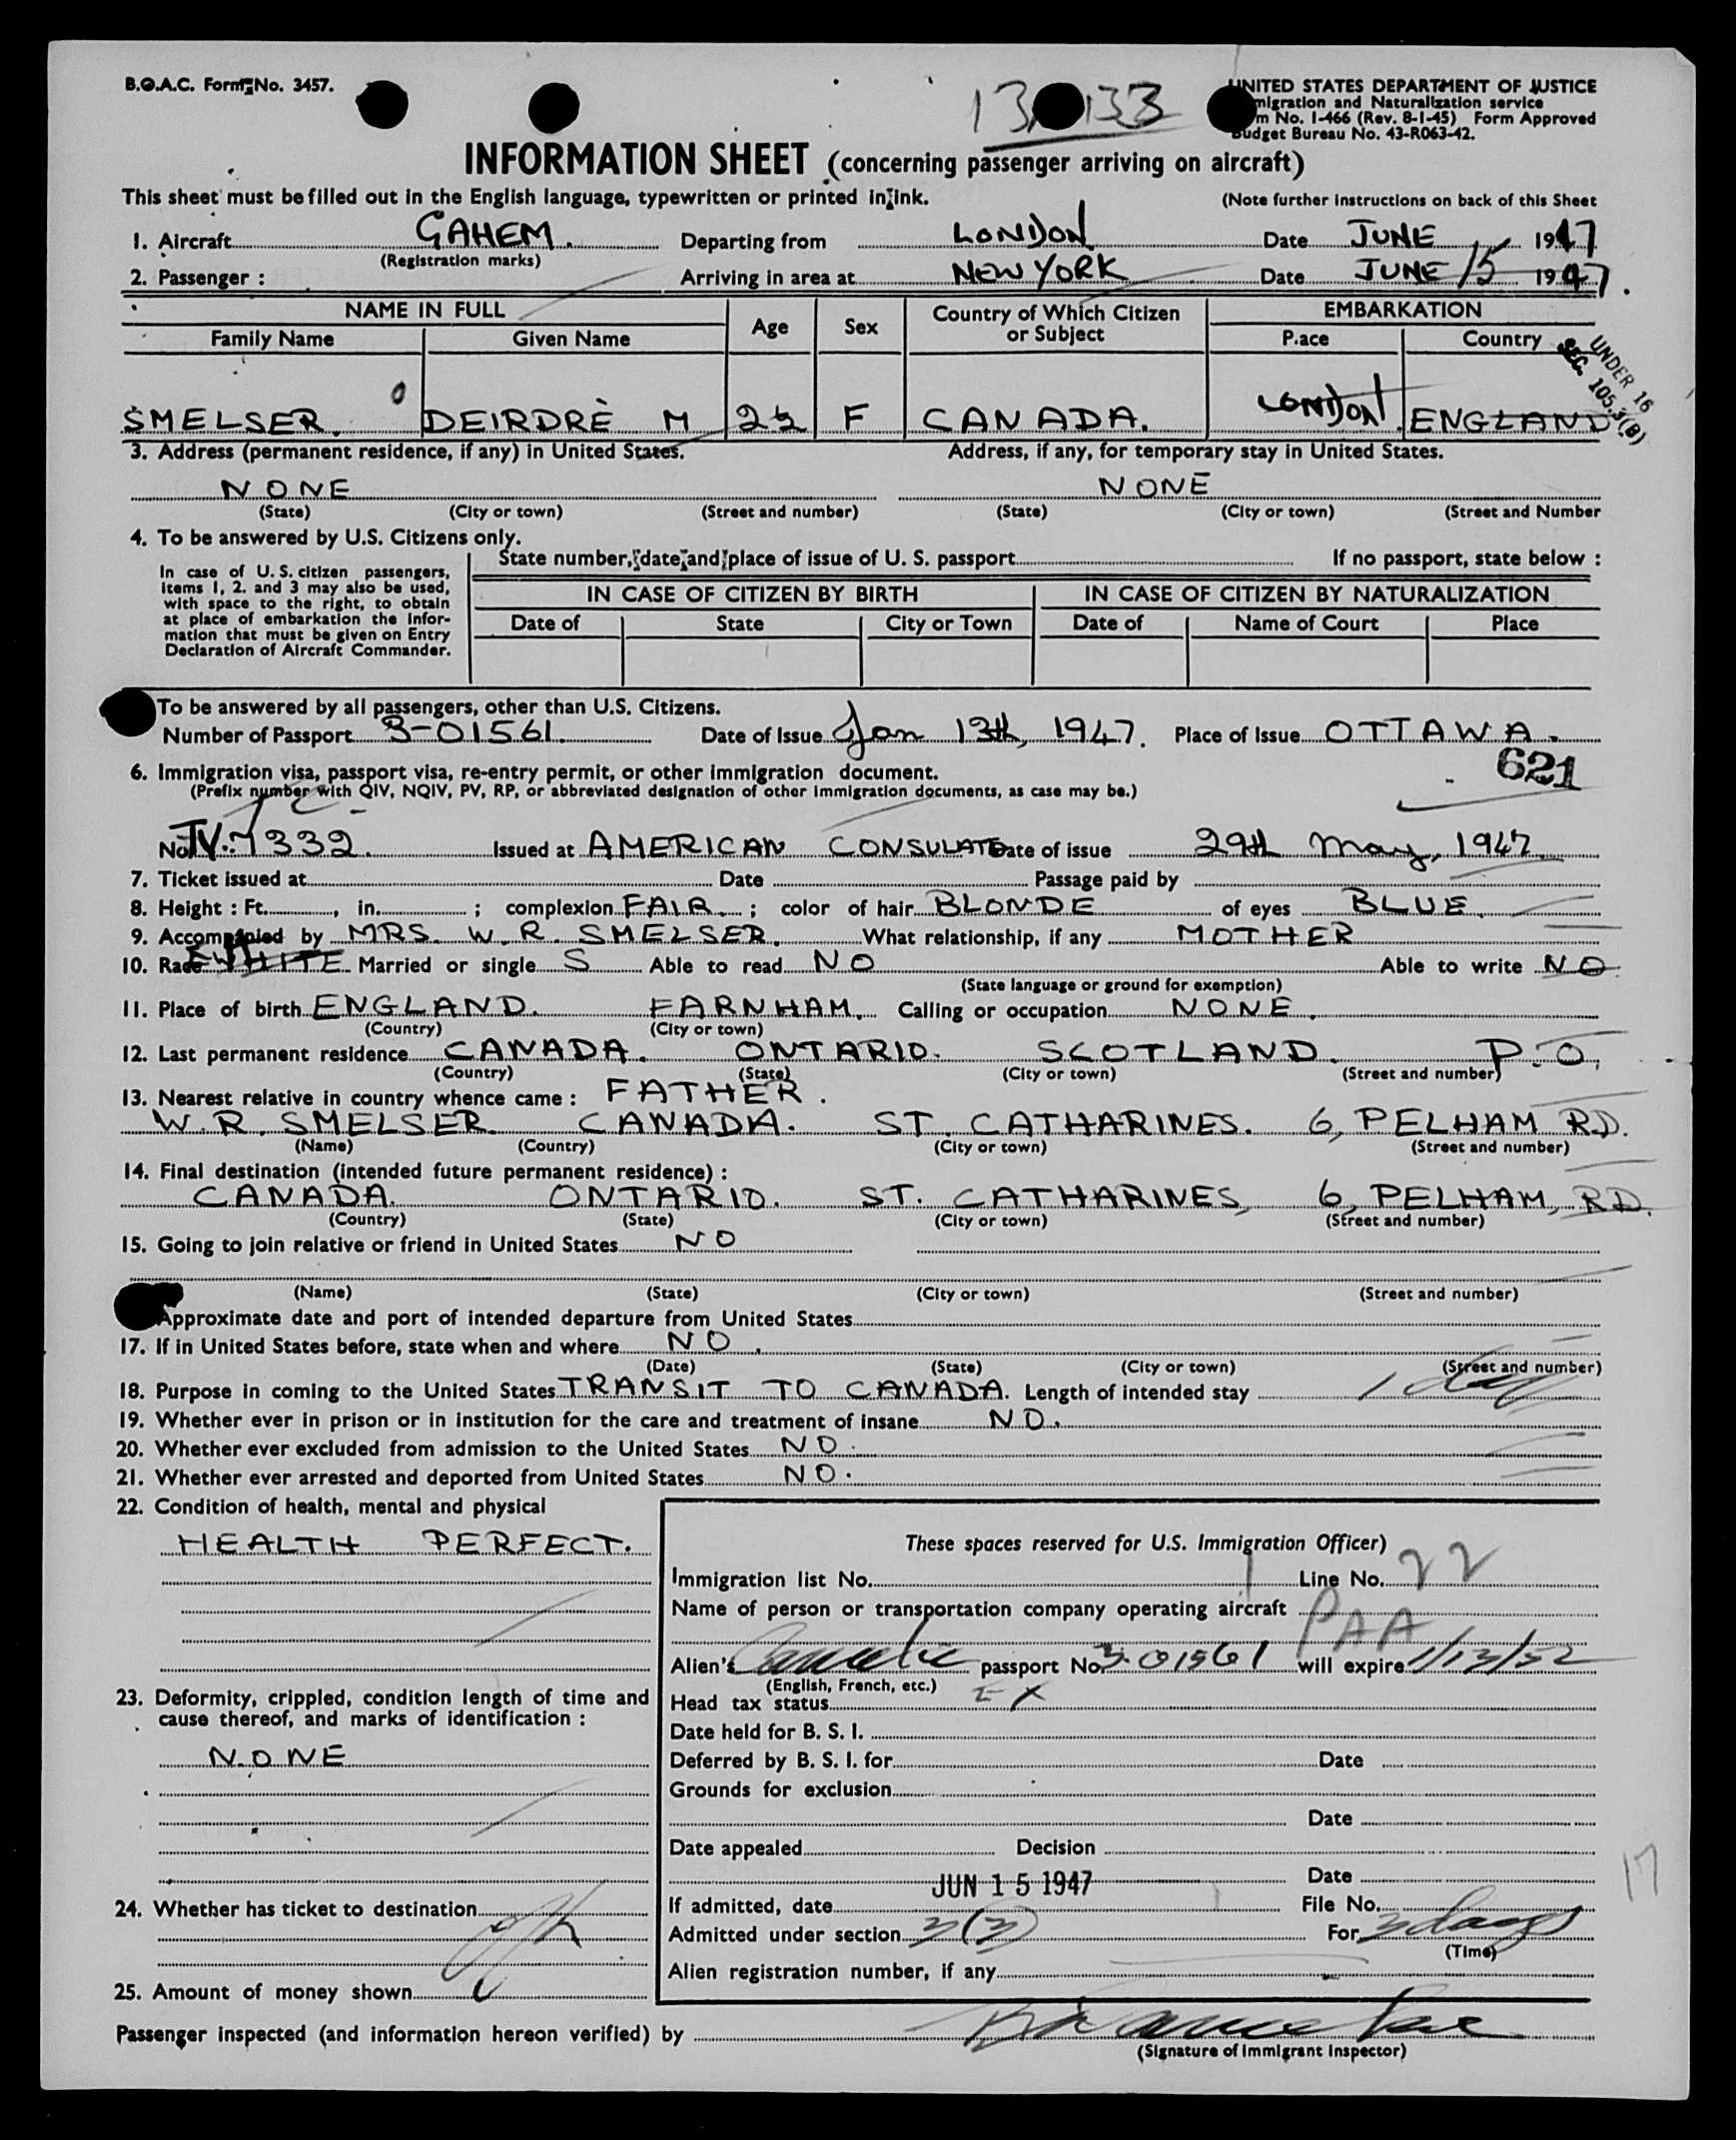 B.O.A.C. Form No. 3457.
13 133
UNITED STATES DEPARTMENT OF JUSTICE
migration and Naturalization service
m No. I-466 (Rev. 8-1-45) Form Approved
Budget Bureau No. 43-R063-42.
INFORMATION SHEET (concerning passenger arriving on aircraft)
This sheet must be filled out in the English language, typewritten or printed in ink. (Note further instructions on back of this Sheet
1. Aircraft GAHEM. Departing from LONDON Date JUNE 1947
(Registration marks)
2. Passenger : Arriving in area at NEW YORK Date JUNE 15 1947.
NAME IN FULL Age Sex Country of Which Citizen or Subject EMBARKATION
Family Name Given Name P.ace Country
UNDER 16
SEC. 105.3(B)
SMELSER. DEIRDRÈ M F CANADA. LONDON ENGLAND
3. Address (permanent residence, if any) in United States. Address, if any, for temporary stay in United States.
NONE NONE
(State) (City or town) (Street and number) (State) (City or town) (Street and Number
4. To be answered by U.S. Citizens only.
State number, date and place of issue of U. S. passport If no passport, state below :
In case of U. S. citizen passengers,
items 1, 2. and 3 may also be used,
with space to the right, to obtain
at place of embarkation the infor-
mation that must be given on Entry
Declaration of Aircraft Commander.
IN CASE OF CITIZEN BY BIRTH IN CASE OF CITIZEN BY NATURALIZATION
Date of State City or Town Date of Name of Court Place
To be answered by all passengers, other than U.S. Citizens.
Number of Passport 3-01561. Date of Issue Jan 13th, 1947. Place of Issue OTTAWA.
621
6. Immigration visa, passport visa, re-entry permit, or other immigration document.
(Prefix number with QIV, NQIV, PV, RP, or abbreviated designation of other immigration documents, as case may be.)
No. TV.7332. Issued at AMERICAN CONSULATE Date of issue 29th May, 1947.
7. Ticket issued at Date Passage paid by
8. Height : Ft. , in. ; complexion FAIR. ; color of hair BLONDE of eyes BLUE.
9. Accompanied by MRS. W. R. SMELSER. What relationship, if any MOTHER
10. Race WHITE Married or single S Able to read NO Able to write NO
(State language or ground for exemption)
11. Place of birth ENGLAND. FARNHAM. Calling or occupation NONE.
(Country) (City or town)
12. Last permanent residence CANADA. ONTARIO. SCOTLAND. P.O.
(Country) (State) (City or town) (Street and number)
13. Nearest relative in country whence came : FATHER.
W. R. SMELSER CANADA. ST. CATHARINES. 6, PELHAM RD.
(Name) (Country) (City or town) (Street and number)
14. Final destination (intended future permanent residence) :
CANADA. ONTARIO. ST. CATHARINES, 6, PELHAM, RD.
(Country) (State) (City or town) (Street and number)
15. Going to join relative or friend in United States NO
(Name) (State) (City or town) (Street and number)
Approximate date and port of intended departure from United States
17. If in United States before, state when and where NO.
(Date) (State) (City or town) (Street and number)
18. Purpose in coming to the United States TRANSIT TO CANADA. Length of intended stay 1 day
19. Whether ever in prison or in institution for the care and treatment of insane NO.
20. Whether ever excluded from admission to the United States NO.
21. Whether ever arrested and deported from United States NO.
22. Condition of health, mental and physical
HEALTH PERFECT.
These spaces reserved for U.S. Immigration Officer)
Immigration list No. 1 Line No. 22
Name of person or transportation company operating aircraft PAA
Alien's passport No. 3-01561 will expire 1/13/52
(English, French, etc.)
23. Deformity, crippled, condition length of time and
cause thereof, and marks of identification :
NONE
Head tax status EX
Date held for B. S. I.
Deferred by B. S. I. for Date
Grounds for exclusion
Date
Date appealed Decision
Date
17
JUN 15 1947
If admitted, date File No.
Admitted under section 3(3) For 3 days
(Time)
Alien registration number, if any
24. Whether has ticket to destination
25. Amount of money shown
Passenger inspected (and information hereon verified) by
(Signature of Immigrant Inspector)